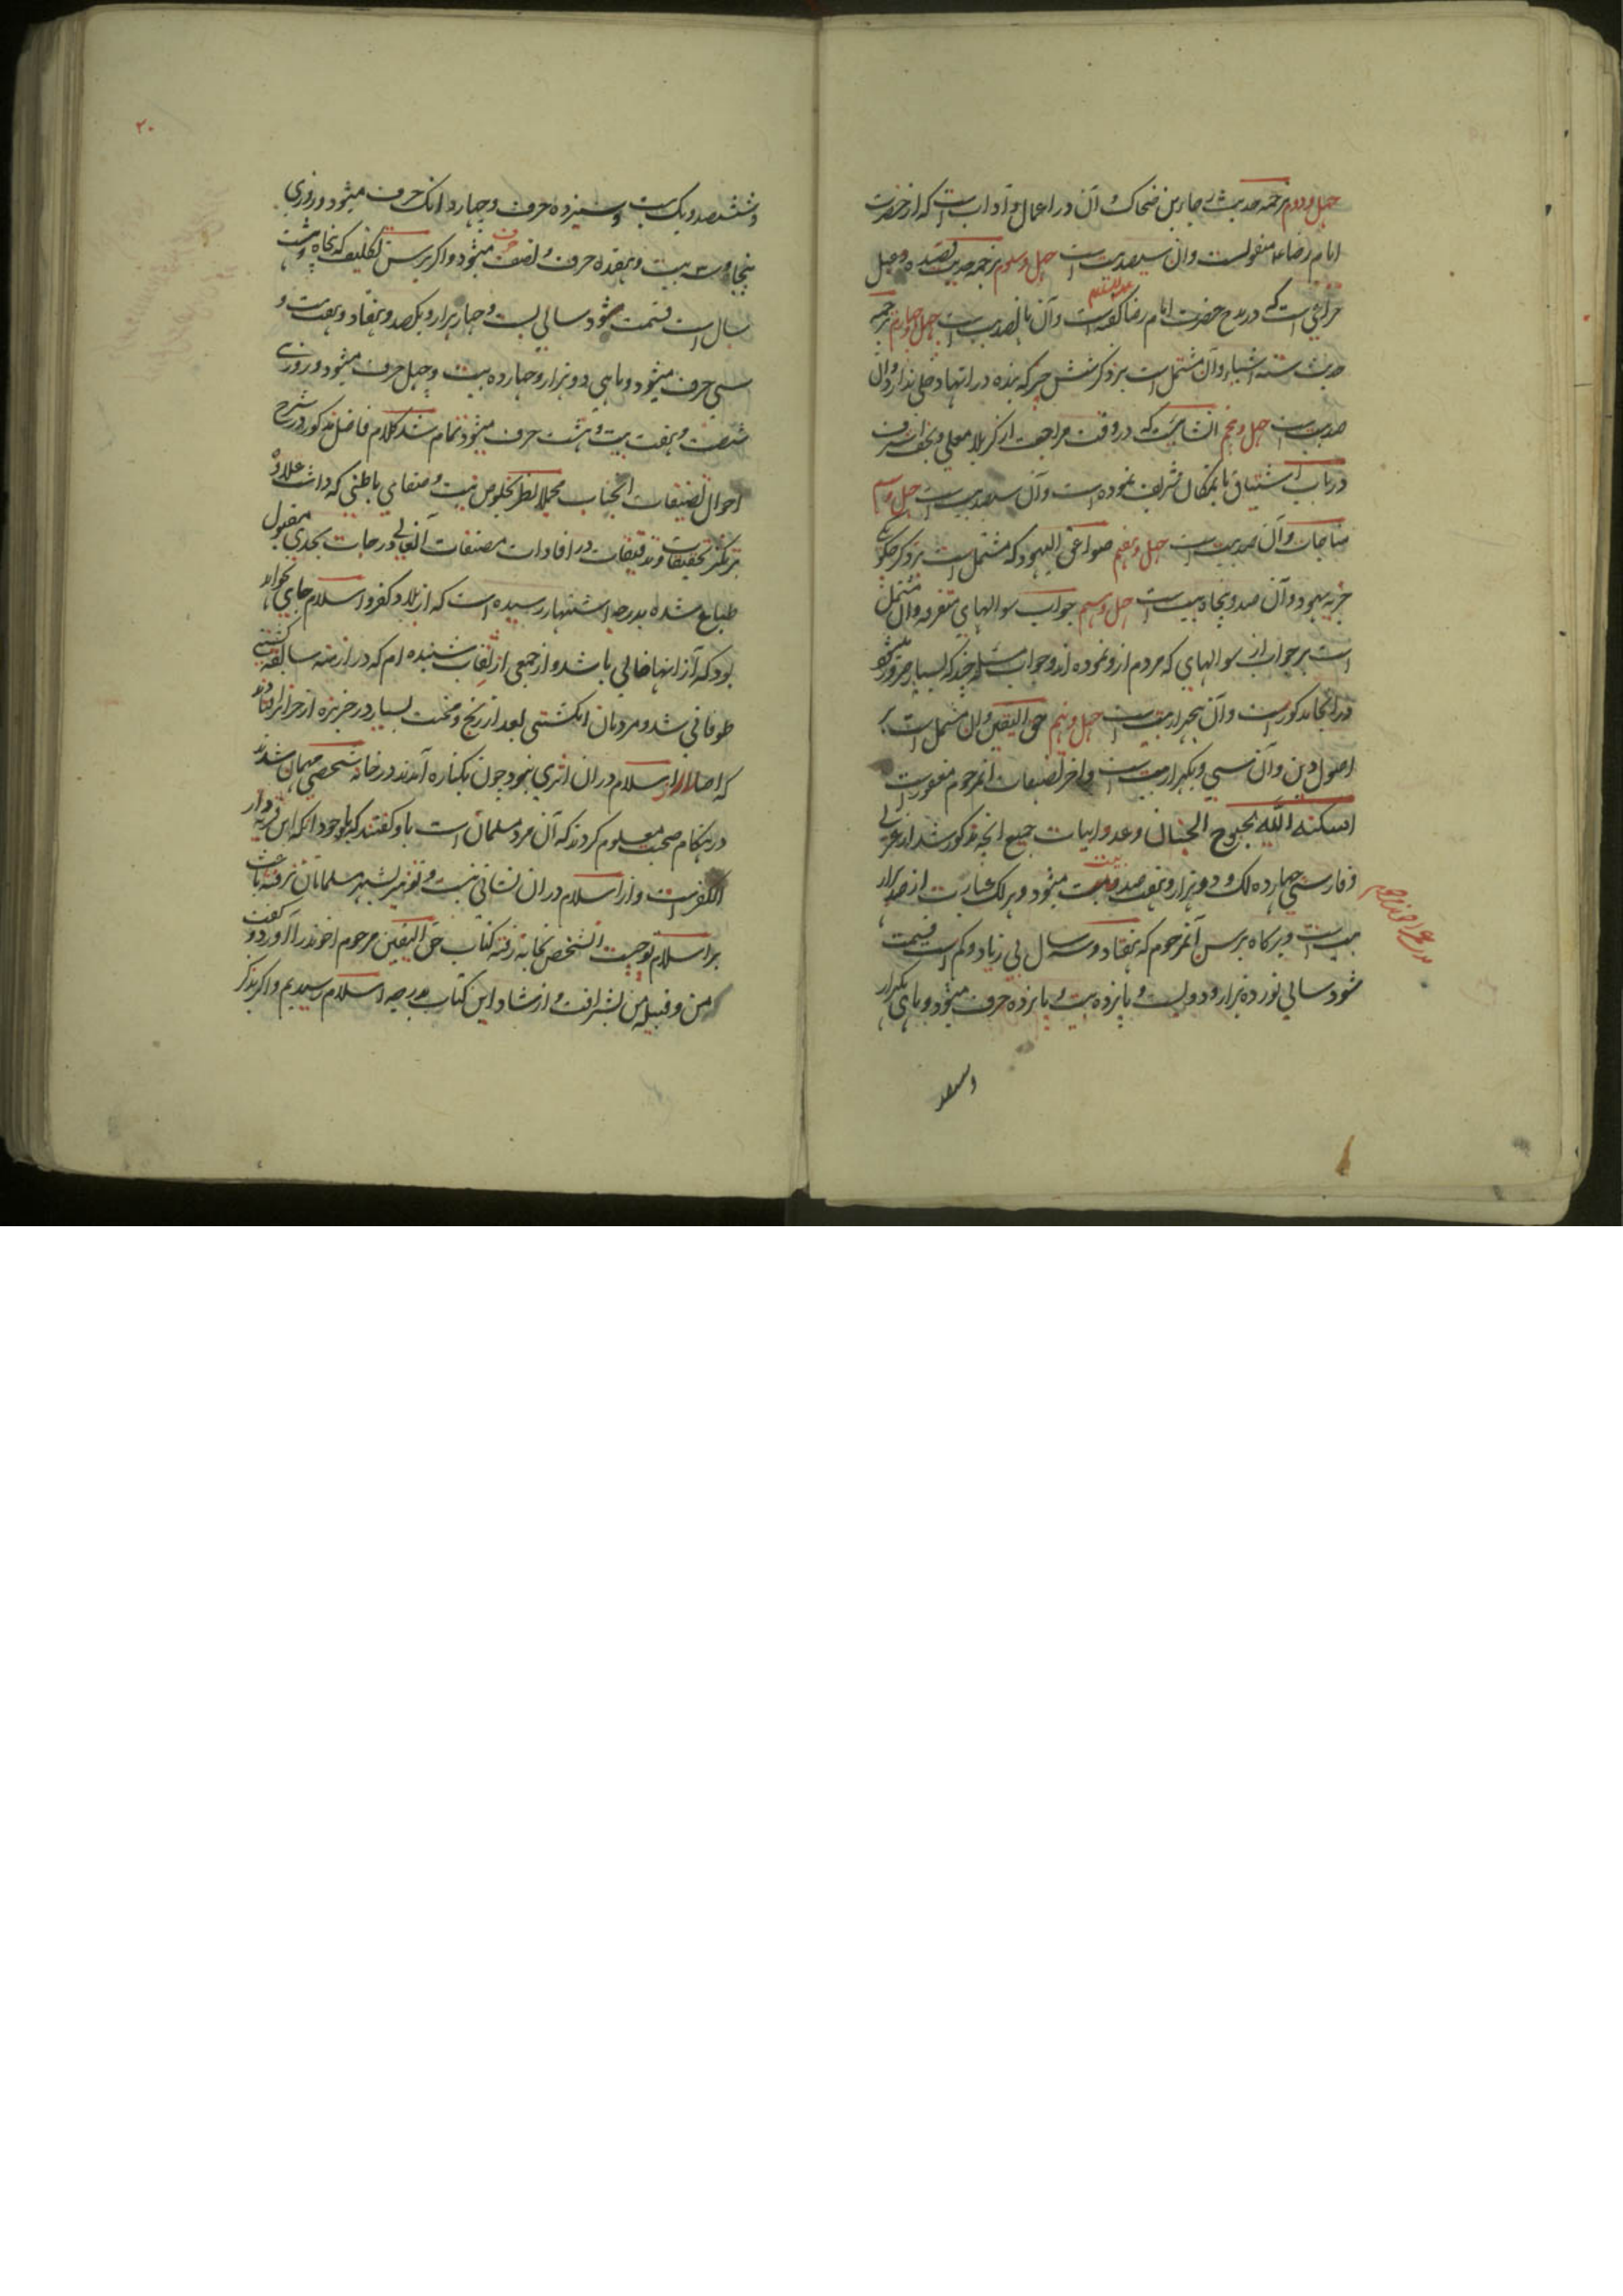 چهل و دوم ترجمه حدیث رجا بن ضحاک و آن در اعمال و آداب است که از حضرت
امام رضا ع منقولست و آن سیصد بیت است چهل و سوم ترجمه حدیث قصیده دعبل
خزاعی است که در مدح حضرت امام رضا علیه السلام گفته است و آن پانصد بیت است چهل و چهارم ترجمه
حدیث ستة اشیاء و آن مشتمل است بر ذکر شش چیز که بنده در آنها دخلی ندارد و آن
صد بیت است چهل و پنجم انشائیست که در وقت مراجعت از کربلا معلی و نجف اشرف
در باب اشتیاق بآنمکان شریف نموده است و آن سیصد بیت است چهل و ششم
مناجات و آن صد بیت است چهل و هفتم صواعق الیهود که مشتمل است بر ذکر چگونگی
جزیه یهود و آن صد و پنجاه بیت است چهل و هشتم جواب سوالهای متفرقه و آن مشتمل
است بر جواب از سوالهای که مردم ازو نموده اند و جواب مسئله چند که بسیار ضرور میشود
در آنجا مذکورست و آن پنجهزار بیت است چهل و نهم حق الیقین و آن مشتمل است بر
اصول دین و آن سی و یکهزار بیت است و آخر تصنیفات آنمرحوم مغفورست
اسکنه الله بحبوح الجنان و عدد ابیات جمیع آنچه مذکور شد از عربی
و فارسی چهارده لک و دو هزار و هفتصد بیت میشود و هر لک عبارت از صد هزار
بیت است و هرگاه بر سن آنمرحوم که هفتاد و سه سال بی زیاد و کم است قسمت
شود سالی نوزده هزار و دویست و پانزده بیت و پانزده حرف میشود و ماهی یکهزار
و ششصد
۲۰
و ششصد و یک بیت و سیزده حرف و چهار دانک حرف میشود و روزی
پنجاه و سه بیت و هفده حرف و نصف حرف میشود و اگر بر سن تکلیف که پنجاه و هشت
سال است قسمت شود سالی بیست و چهار هزار و یکصد و هفتاد و هفت بیت و
سی حرف میشود و ماهی دو هزار و چهارده بیت و چهل حرف میشود و روزی
شصت و هفت بیت و هشت حرف میشود تمام شد کلام فاضل مذکور در شرح
احوال تصنیفات آنجناب مجملا نظر بخلوص نیت و صفای باطنی که داشت علاوه
بر تکثر تحقیقات و تدقیقات در افادات مصنفات آنعالی درجات بحدی مقبول
طباع شده بدرجه اشتهار رسیده است که از بلاد کفر و اسلام جای نخواهد
بود که از آنها خالی باشد و از جمعی از ثقات شنیده ام که در ازمنه سابقه کشتی
طوفانی شد و مردمان آنکشتی بعد از رنج و محنت بسیار در جزیره از جزایر افتادند
که اصلا از اسلام در آن اثری نبود چون بکناره آمدند در خانه شخصی مهمان شدند
در هنگام صحبت معلوم کردند که آن مرد مسلمان است باو گفتند که باوجود آنکه این قریه دار
الکفرست و از اسلام در آن نشانی نیست و تو نیز بشهر مسلمانان نرفته باعث
بر اسلام تو چیست آنشخص بخانه رفته کتاب حق الیقین مرحوم آخوند را آورد و گفت
من و قبیله من بشرافت و ارشاد این کتاب بدرجه اسلام رسیدیم و اگر بذکر